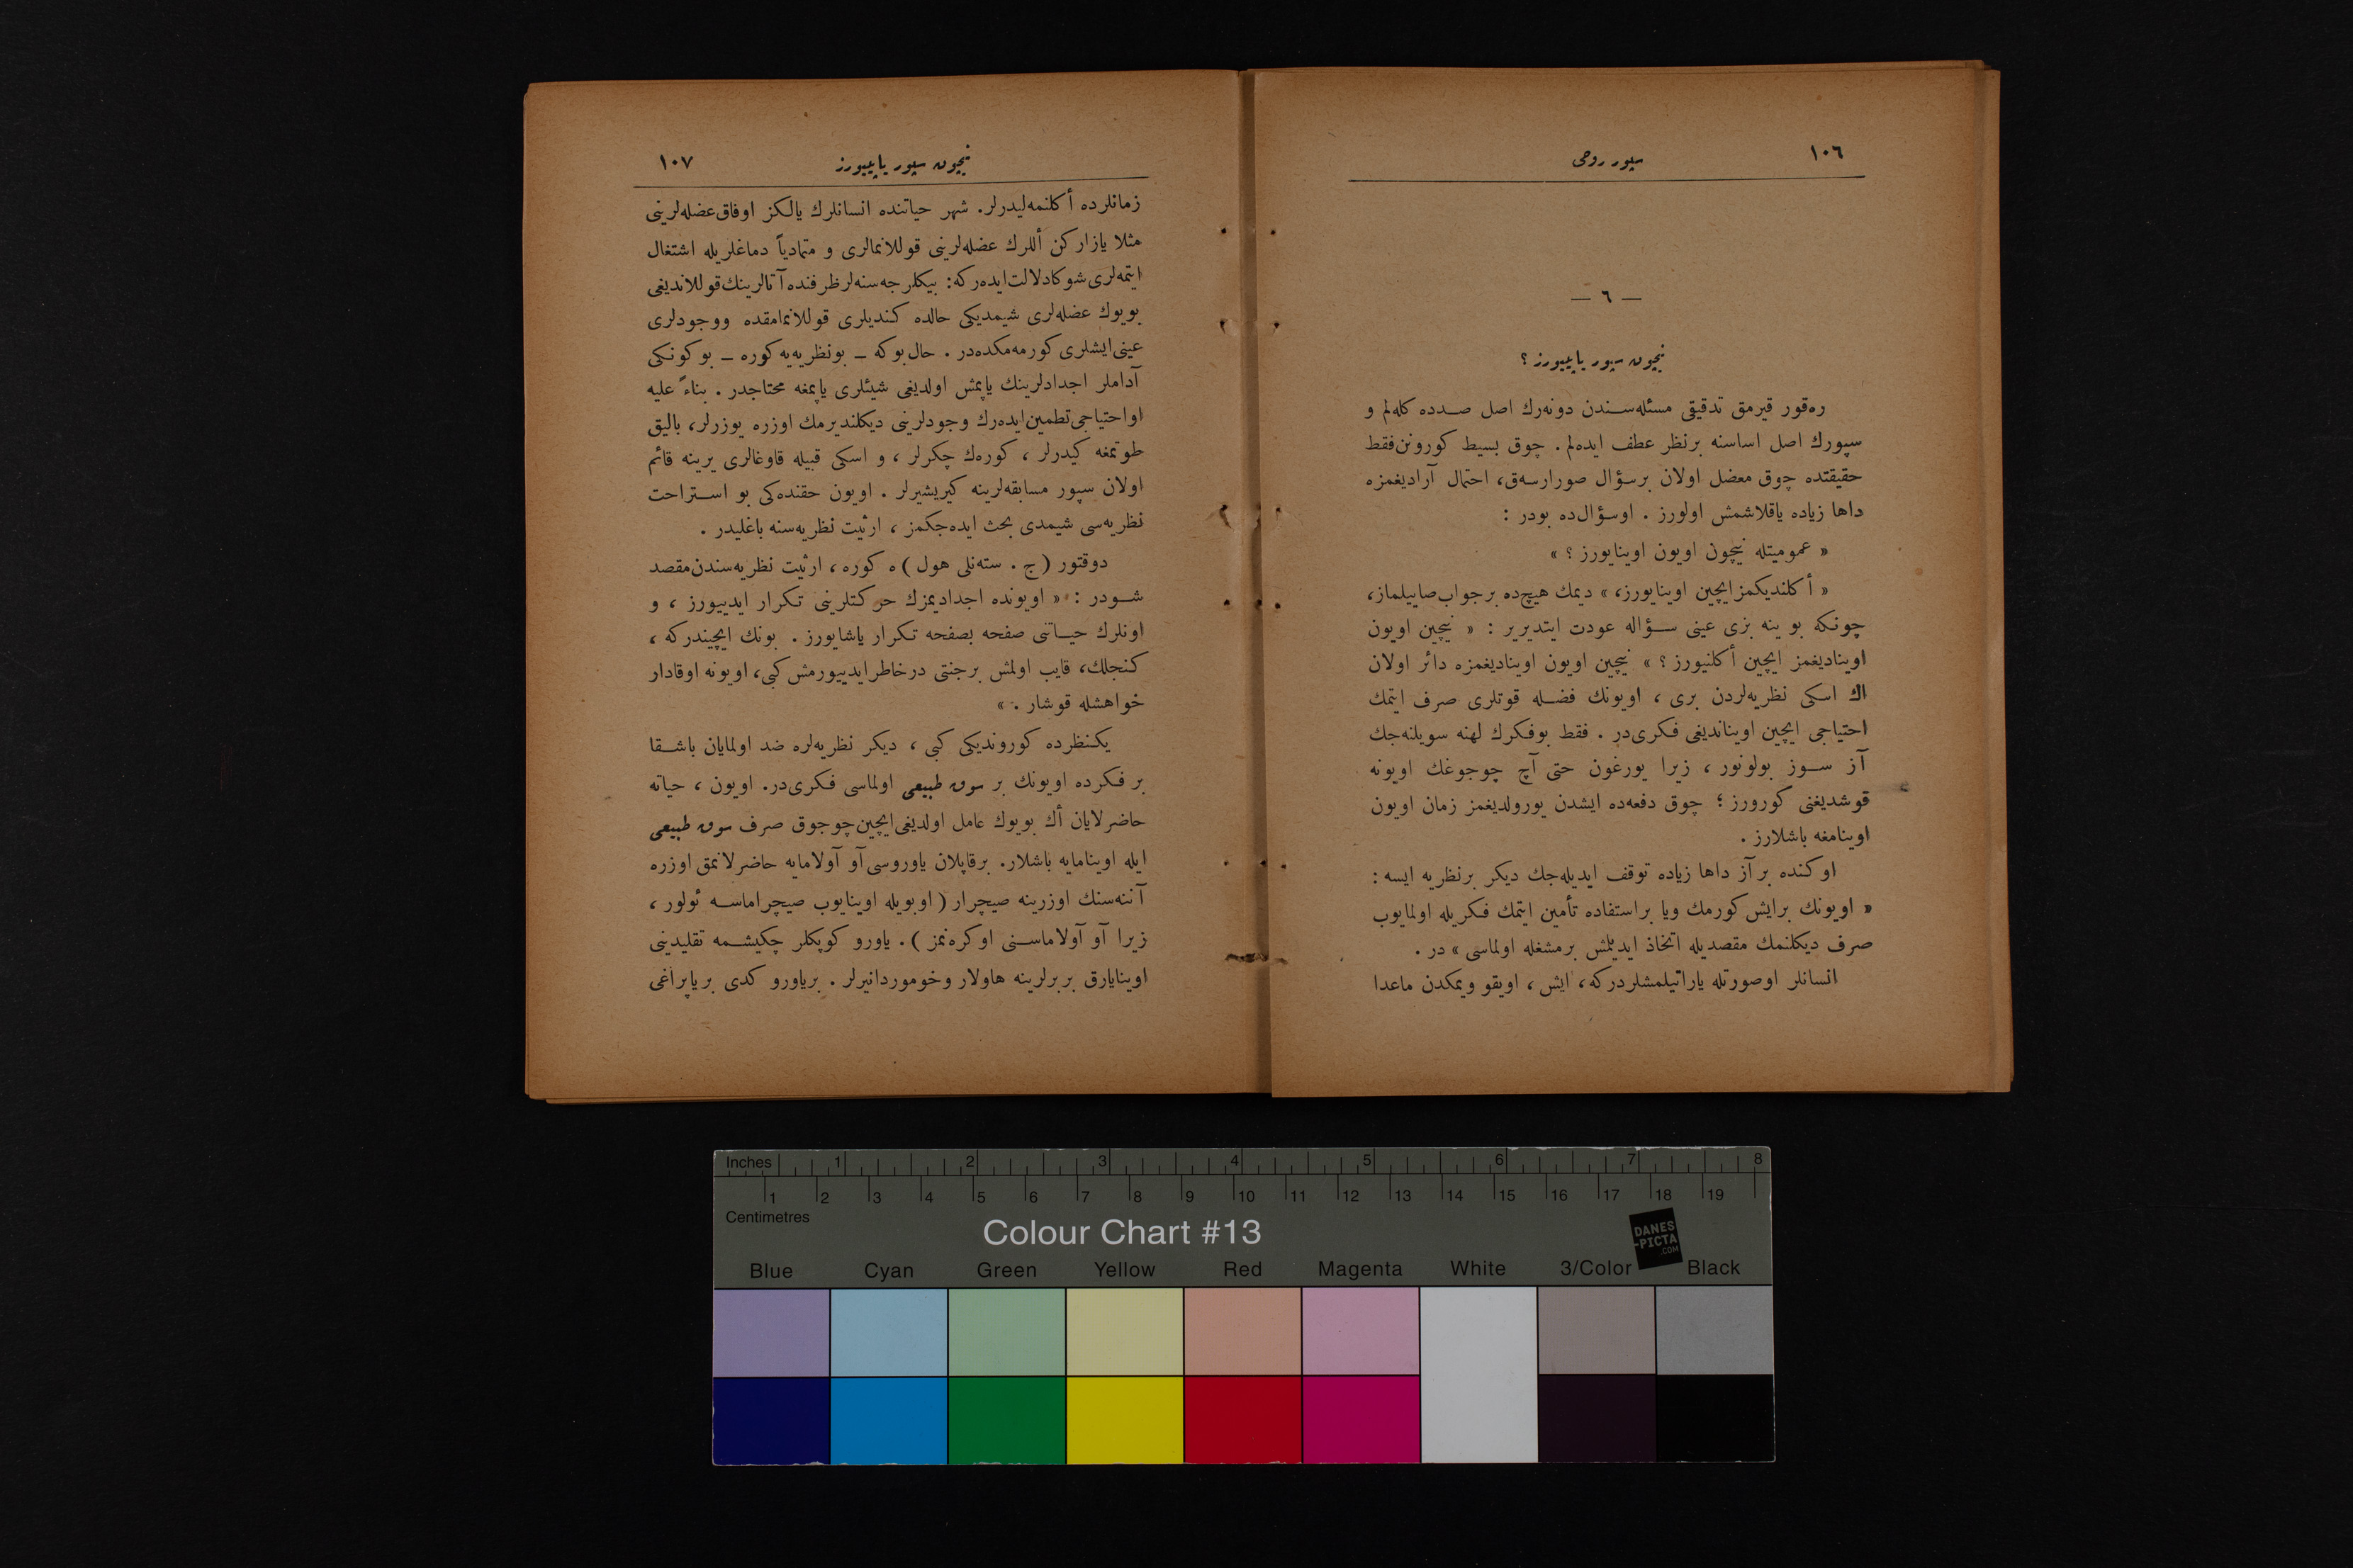 ١٠٦
سپور روحی
— ٦ —
نیچون سپور یاپییورز ؟
ره‌قور قیرمق تدقیقی مسئله‌سندن دونه‌رك اصل صدده كله‌لم و
سپورك اصل اساسنه برنظر عطف ایده‌لم . چوق بسیط كورونن فقط
حقیقتده چوق معضل اولان برسؤال صورارسه‌ق، احتمال آرادیغمزه
داها زیاده یاقلاشمش اولورز . اوسؤال‌ده بودر :
« عمومیتله نیچون اویون اوینایورز ؟ »
« أكلندیكمز ایچین اوینایورز، » دیمك هیچ‌ده برجواب صاییلماز،
چونكه بو ینه بزی عینی سؤاله عودت ایتدیریر : « نیچین اویون
اوینادیغمز ایچین أكلنیورز ؟ » نیچین اویون اوینادیغمزه دائر اولان
اك اسكی نظریه‌لردن بری ، اویونك فضله قوتلری صرف ایتمك
احتیاجی ایچین اویناندیغی فكری‌در . فقط بوفكرك لهنه سویلنه‌جك
آز سوز بولونور ، زیرا یورغون حتی آچ چوجوغك اویونه
قوشدیغنی كورورز ؛ چوق دفعه‌ده ایشدن یورولدیغمز زمان اویون
اوینامغه باشلارز .
اوكنده بر آز داها زیاده توقف ایدیله‌جك دیكر برنظریه ایسه :
« اویونك برایش كورمك ویا براستفاده تأمین ایتمك فكریله اولمایوب
صرف دیكلنمك مقصدیله اتخاذ ایدیلمش برمشغله اولماسی » در .
انسانلر اوصورتله یاراتیلمشلردركه، ایش ، اویقو ویمكدن ماعدا
نیچون سپور یاپییورز
١٠٧
زمانلرده أكلنمه‌لیدرلر. شهر حیاتنده انسانلرك یالكز اوفاق عضله‌لرینی
مثلا یازاركن أللرك عضله‌لرینی قوللانمالری و متمادیاً دماغلریله اشتغال
ایتمه‌لری شوكا دلالت ایده‌ركه: بیكلرجه سنه‌لر ظرفنده آتالرینك قوللاندیغی
بویوك عضله‌لری شیمدیكی حالده كندیلری قوللانمامقده ووجودلری
عینی ایشلری كورمه‌مكده‌در . حال بوكه – بونظریه‌یه كوره – بو كونكی
آداملر اجدادلرینك یاپمش اولدیغی شیئلری یاپمغه محتاجدر . بناءً علیه
اواحتیاجی تطمین ایده‌رك وجودلرینی دیكلندیرمك اوزره یوزرلر، بالیق
طوتمغه كیدرلر ، كوره‌ك چكرلر ، و اسكی قبیله قاوغالری یرینه قائم
اولان سپور مسابقه‌لرینه كیریشیرلر . اویون حقنده‌كی بو استراحت
نظریه‌سی شیمدی بحث ایده‌جكمز ، ارثیت نظریه‌سنه باغلیدر .
دوقتور (ج . سته‌نلی هول) ه كوره ، ارثیت نظریه‌سندن مقصد
شودر : « اویونده اجدادیمزك حركتلرینی تكرار ایدییورز ، و
اونلرك حیاتنی صفحه بصفحه تكرار یاشایورز . بونك ایچیندركه ،
كنجلك، قایب اولمش برجنتی درخاطر ایدییورمش كبی، اویونه اوقادار
خواهشله قوشار . »
یكنظرده كوروندیكی كبی ، دیكر نظریه‌لره ضد اولمایان باشقا
بر فكرده اویونك بر سوق طبیعی اولماسی فكری‌در. اویون ، حیاته
حاضرلایان أك بویوك عامل اولدیغی ایچین چوجوق صرف سوق طبیعی
ایله اوینامایه باشلار. برقاپلان یاوروسی آو آولامایه حاضرلانمق اوزره
آننه‌سنك اوزرینه صیچرار (اوبویله اوینایوب صیچراماسه ئولور ،
زیرا آو آولاماسنی اوكره‌نمز ). یاورو كوپكلر چكیشمه تقلیدینی
اوینایارق بربرلرینه هاولار وخوموردانیرلر . بریاورو كدی بریاپراغی
Inches 1 2 3 4 5 6 7 8
1 2 3 4 5 6 7 8 9 10 11 12 13 14 15 16 17 18 19
Centimetres
Colour Chart #13
DANES
-PICTA
.COM
Blue Cyan Green Yellow Red Magenta White 3/Color Black